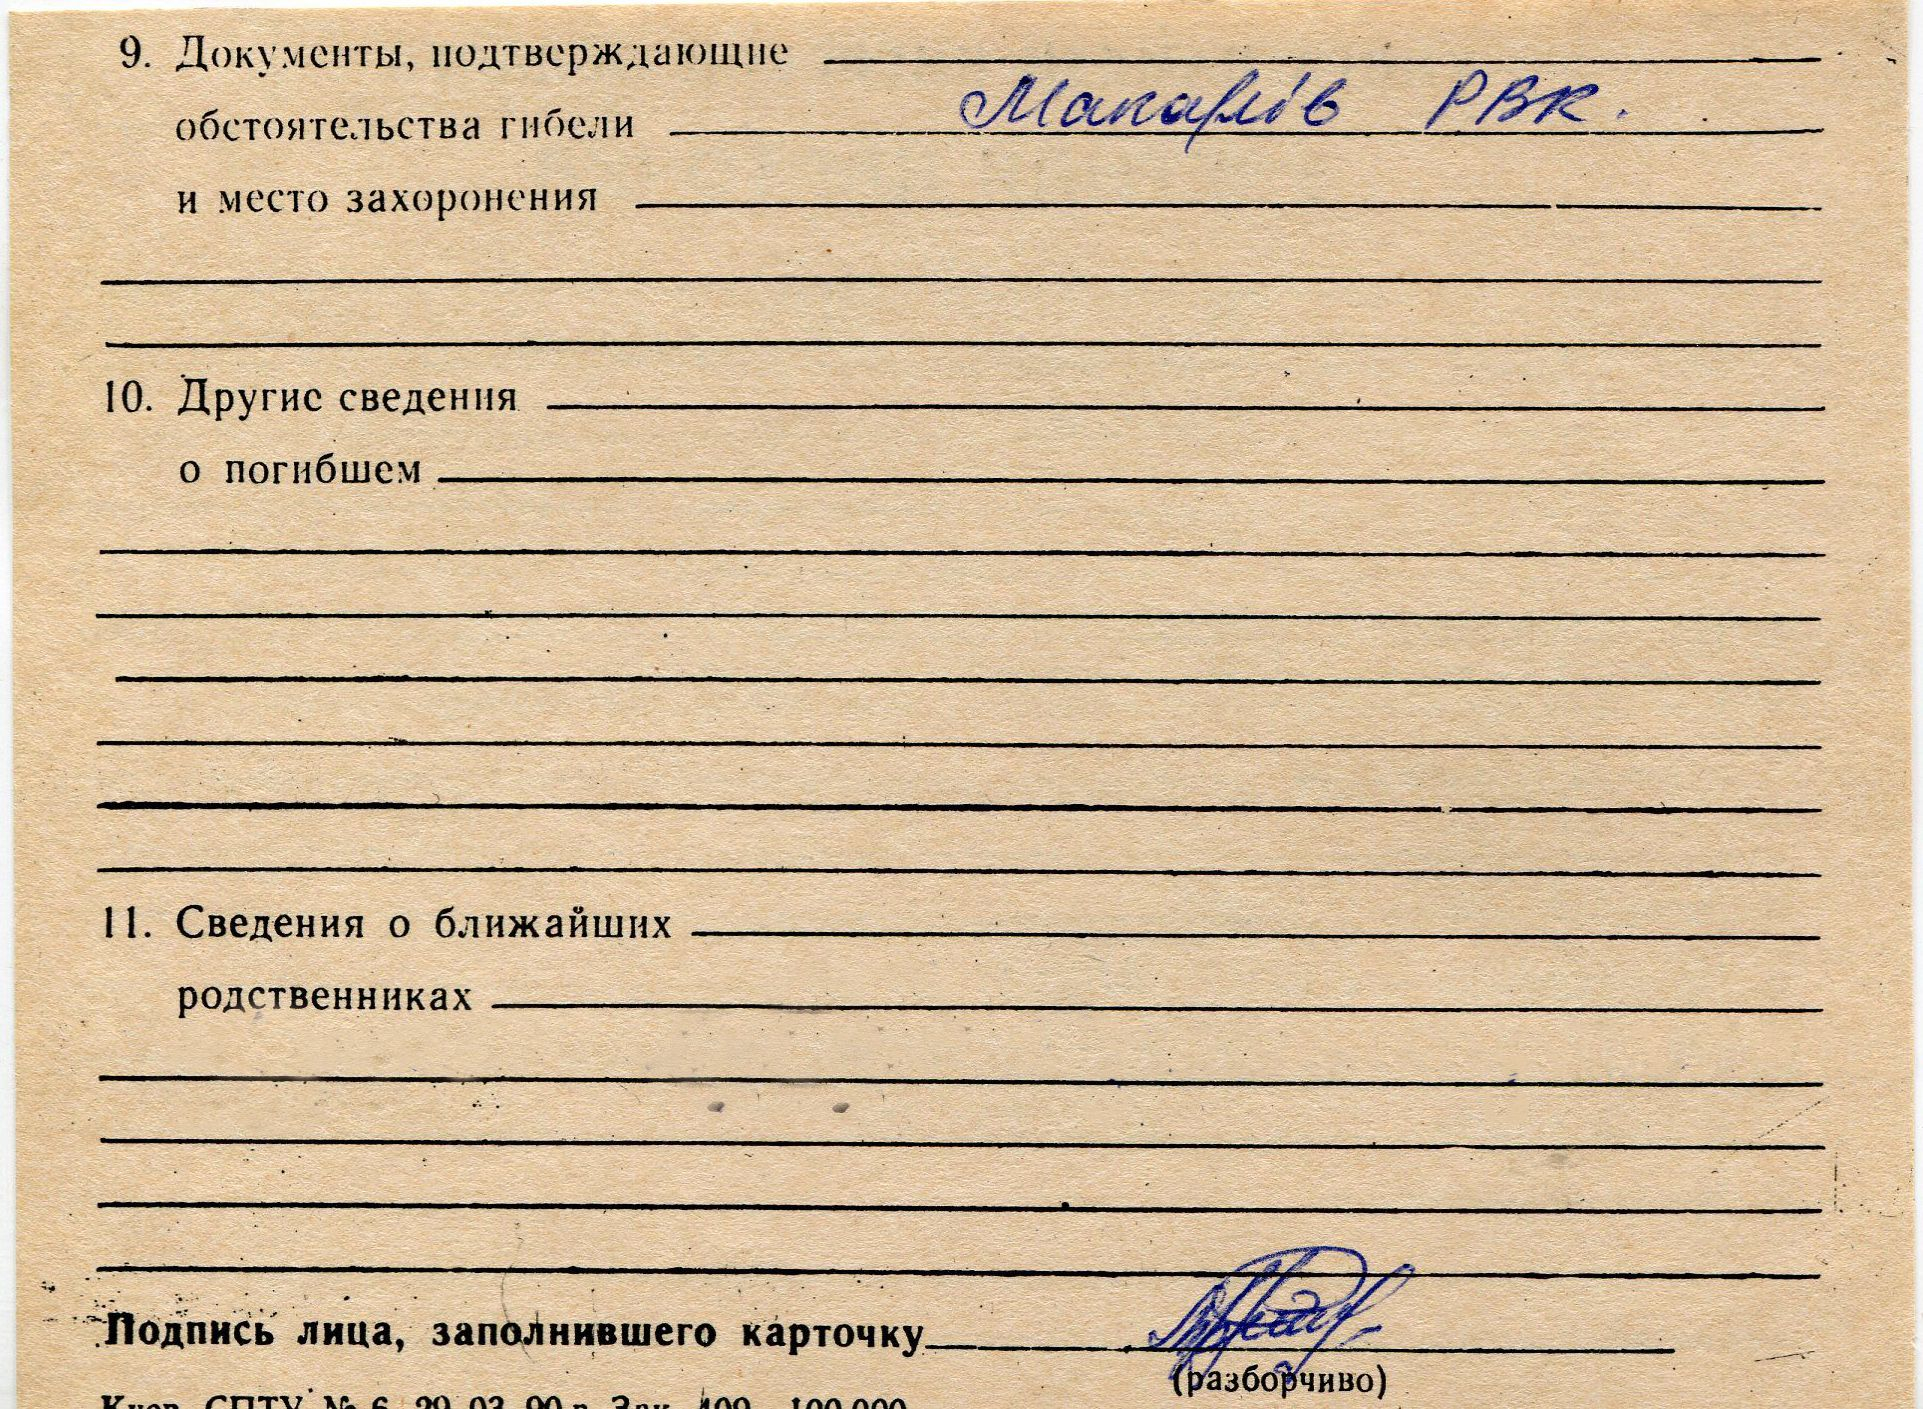 9. Документы, подтверждающие
обстоятельства гибели Макарів РВК.
и место захоронения
10. Другие сведения
о погибшем
11. Сведения о ближайших
родственниках
Подпись лица, заполнившего карточку
(разборчиво)
Киев, СПТУ № 6, 29. 03. 90 г. Зак. 409 – 100.000